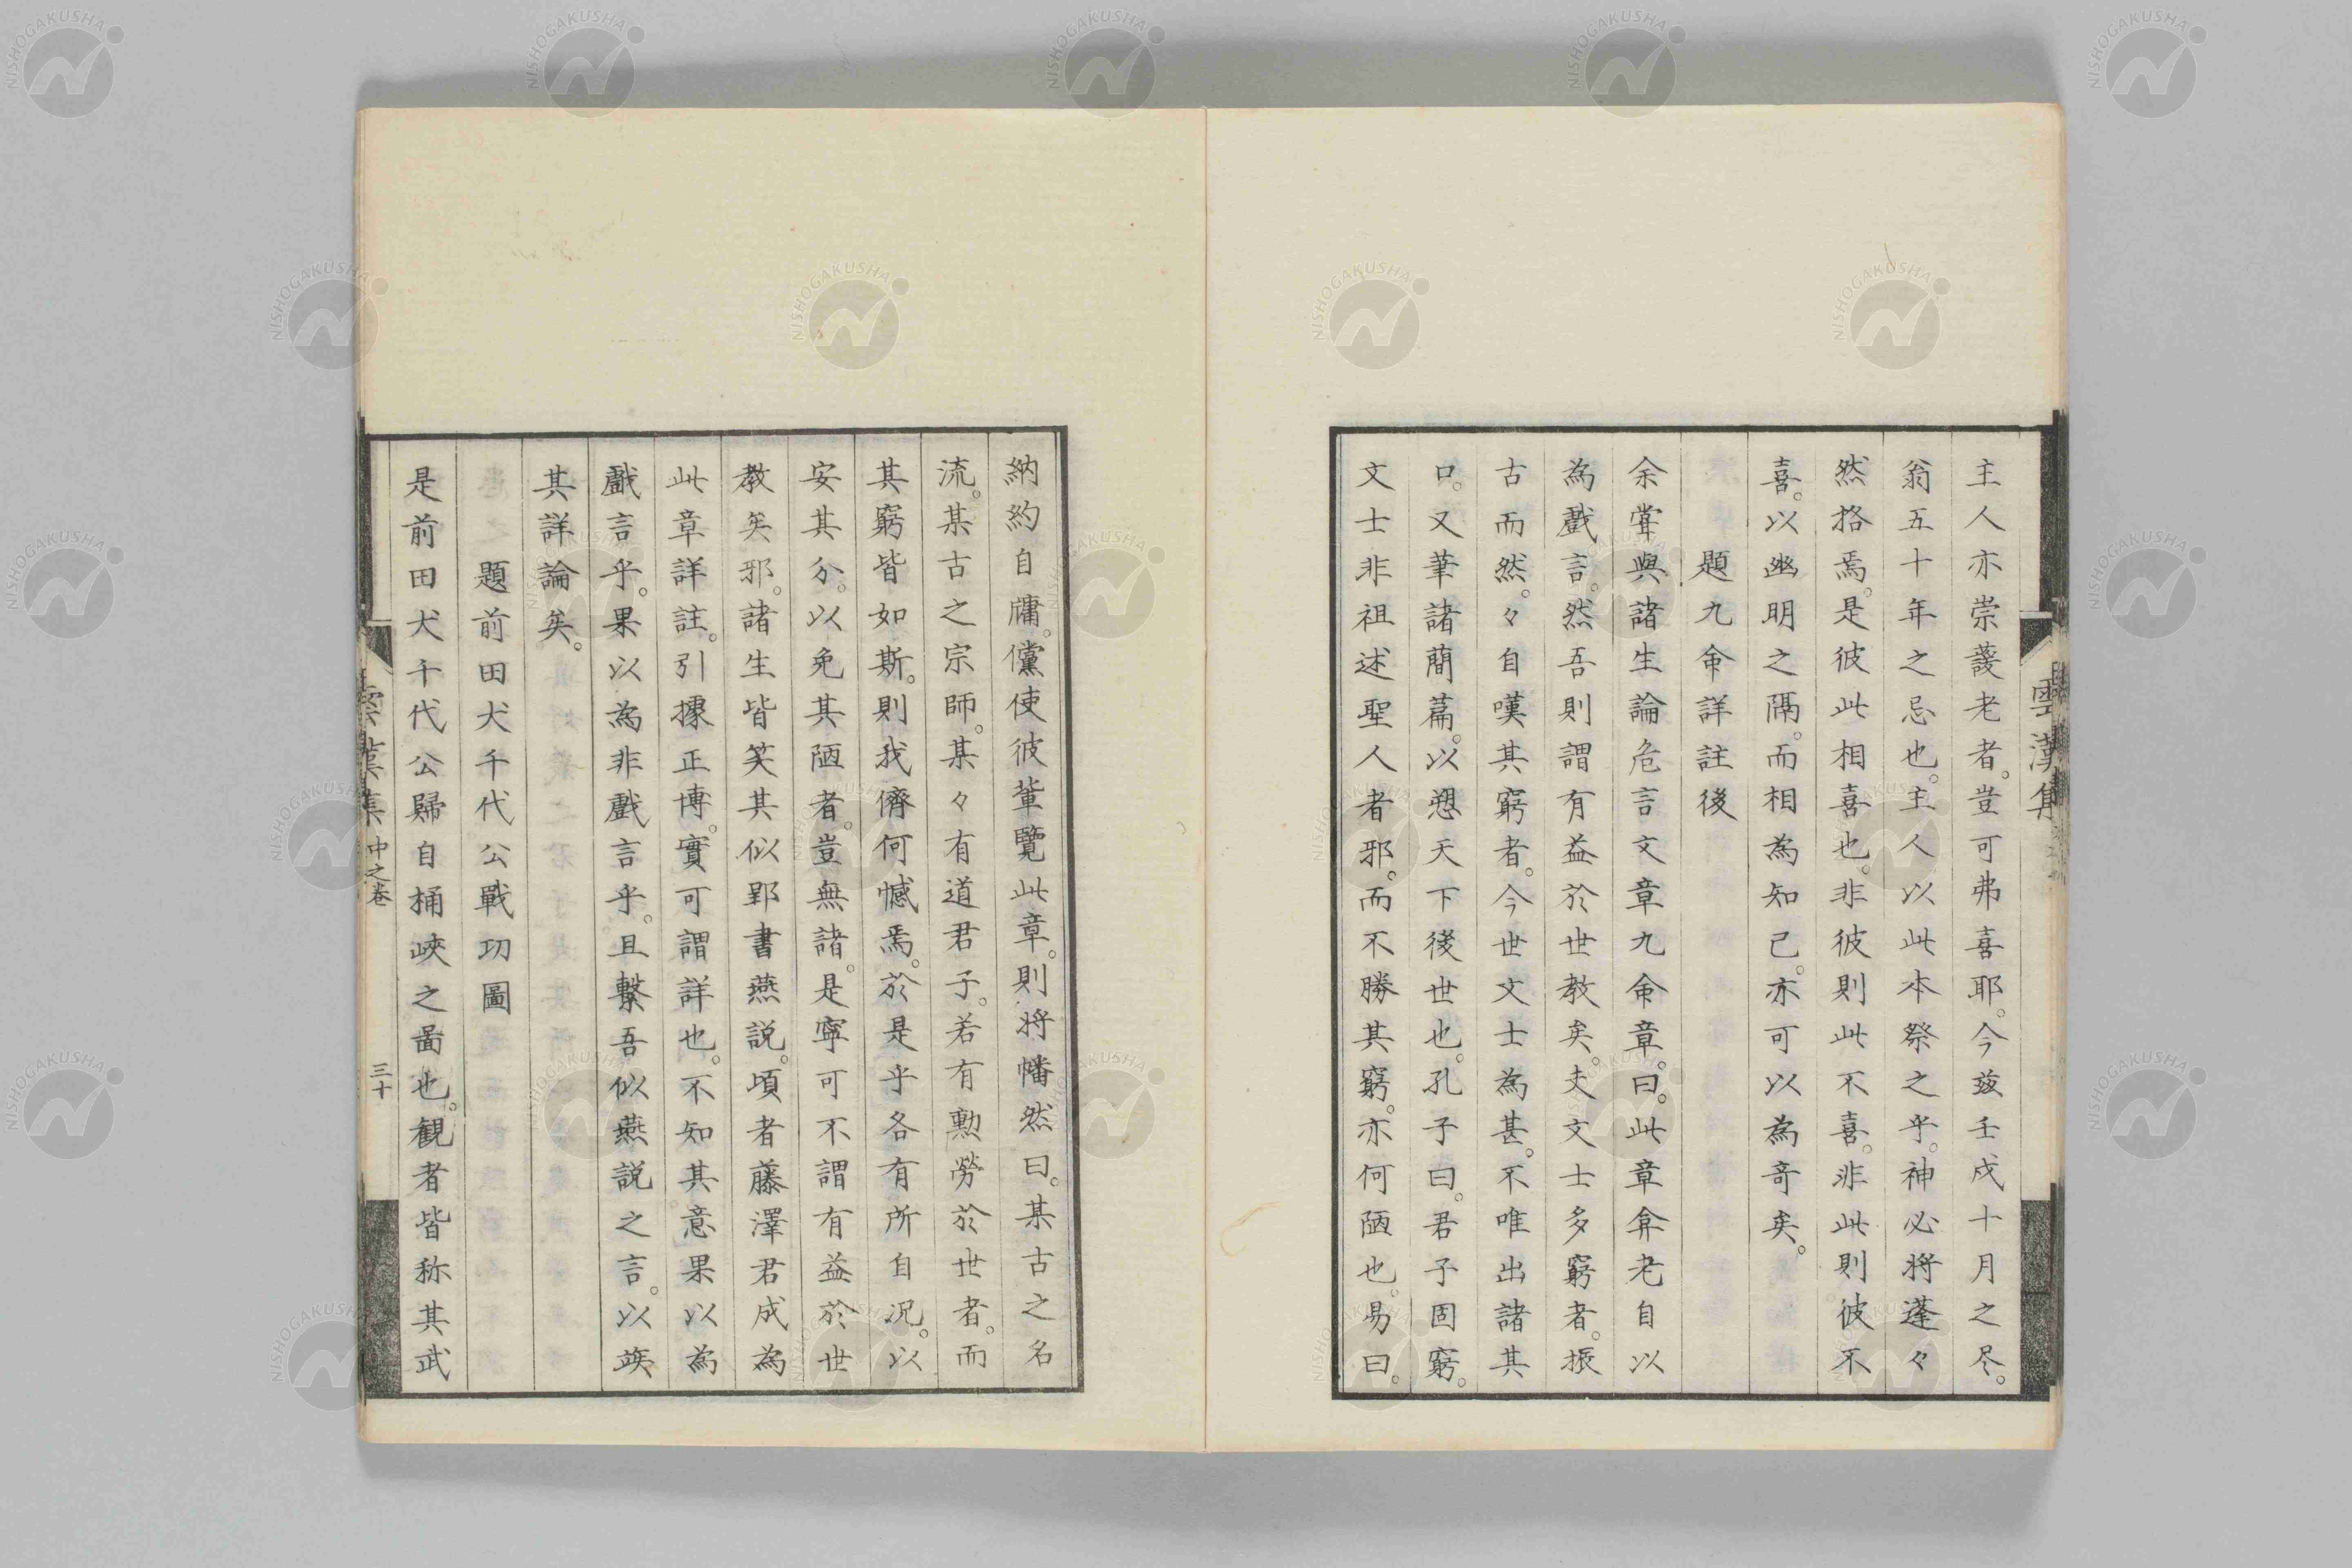 主人亦崇護老者。豈可弗喜耶。今茲壬戌十月之尽。
翁五十年之忌也。主人以此本祭之乎。神必将蓬々
然格焉。是彼此相喜也。非彼則此不喜。非此則彼不
喜。以幽明之隔。而相為知己。亦可以為奇矣。
題九命詳註後
余嘗與諸生論危言文章九命章。曰。此章弇老自以
為戲言。然吾則謂有益於世教矣。夫文士多窮者。振
古而然。々自嘆其窮者。今世文士為甚。不唯出諸其
口。又筆諸簡篇。以愬天下後世也。孔子曰。君子固窮。
文士非祖述聖人者邪。而不勝其窮。亦何陋也。易曰。
雲漢集
納約自牖。儻使彼輩覽此章。則将幡然曰。某古之名
流。某古之宗師。某々有道君子。若有勲勞於世者。而
其窮皆如斯。則我儕何憾焉。於是乎各有所自况。以
安其分。以免其陋者。豈無諸。是寧可不謂有益於世
教矣邪。諸生皆笑其似郢書燕説。頃者藤澤君成為
此章詳註。引據正博。實可謂詳也。不知其意果以為
戲言乎。果以為非戲言乎。且繫吾似燕説之言。以竢
其詳論矣。
題前田犬千代公戰功圖
是前田犬千代公歸自桶峽之啚也。観者皆称其武
雲漢集 中之巻 三十
NISHOGAKUSHA